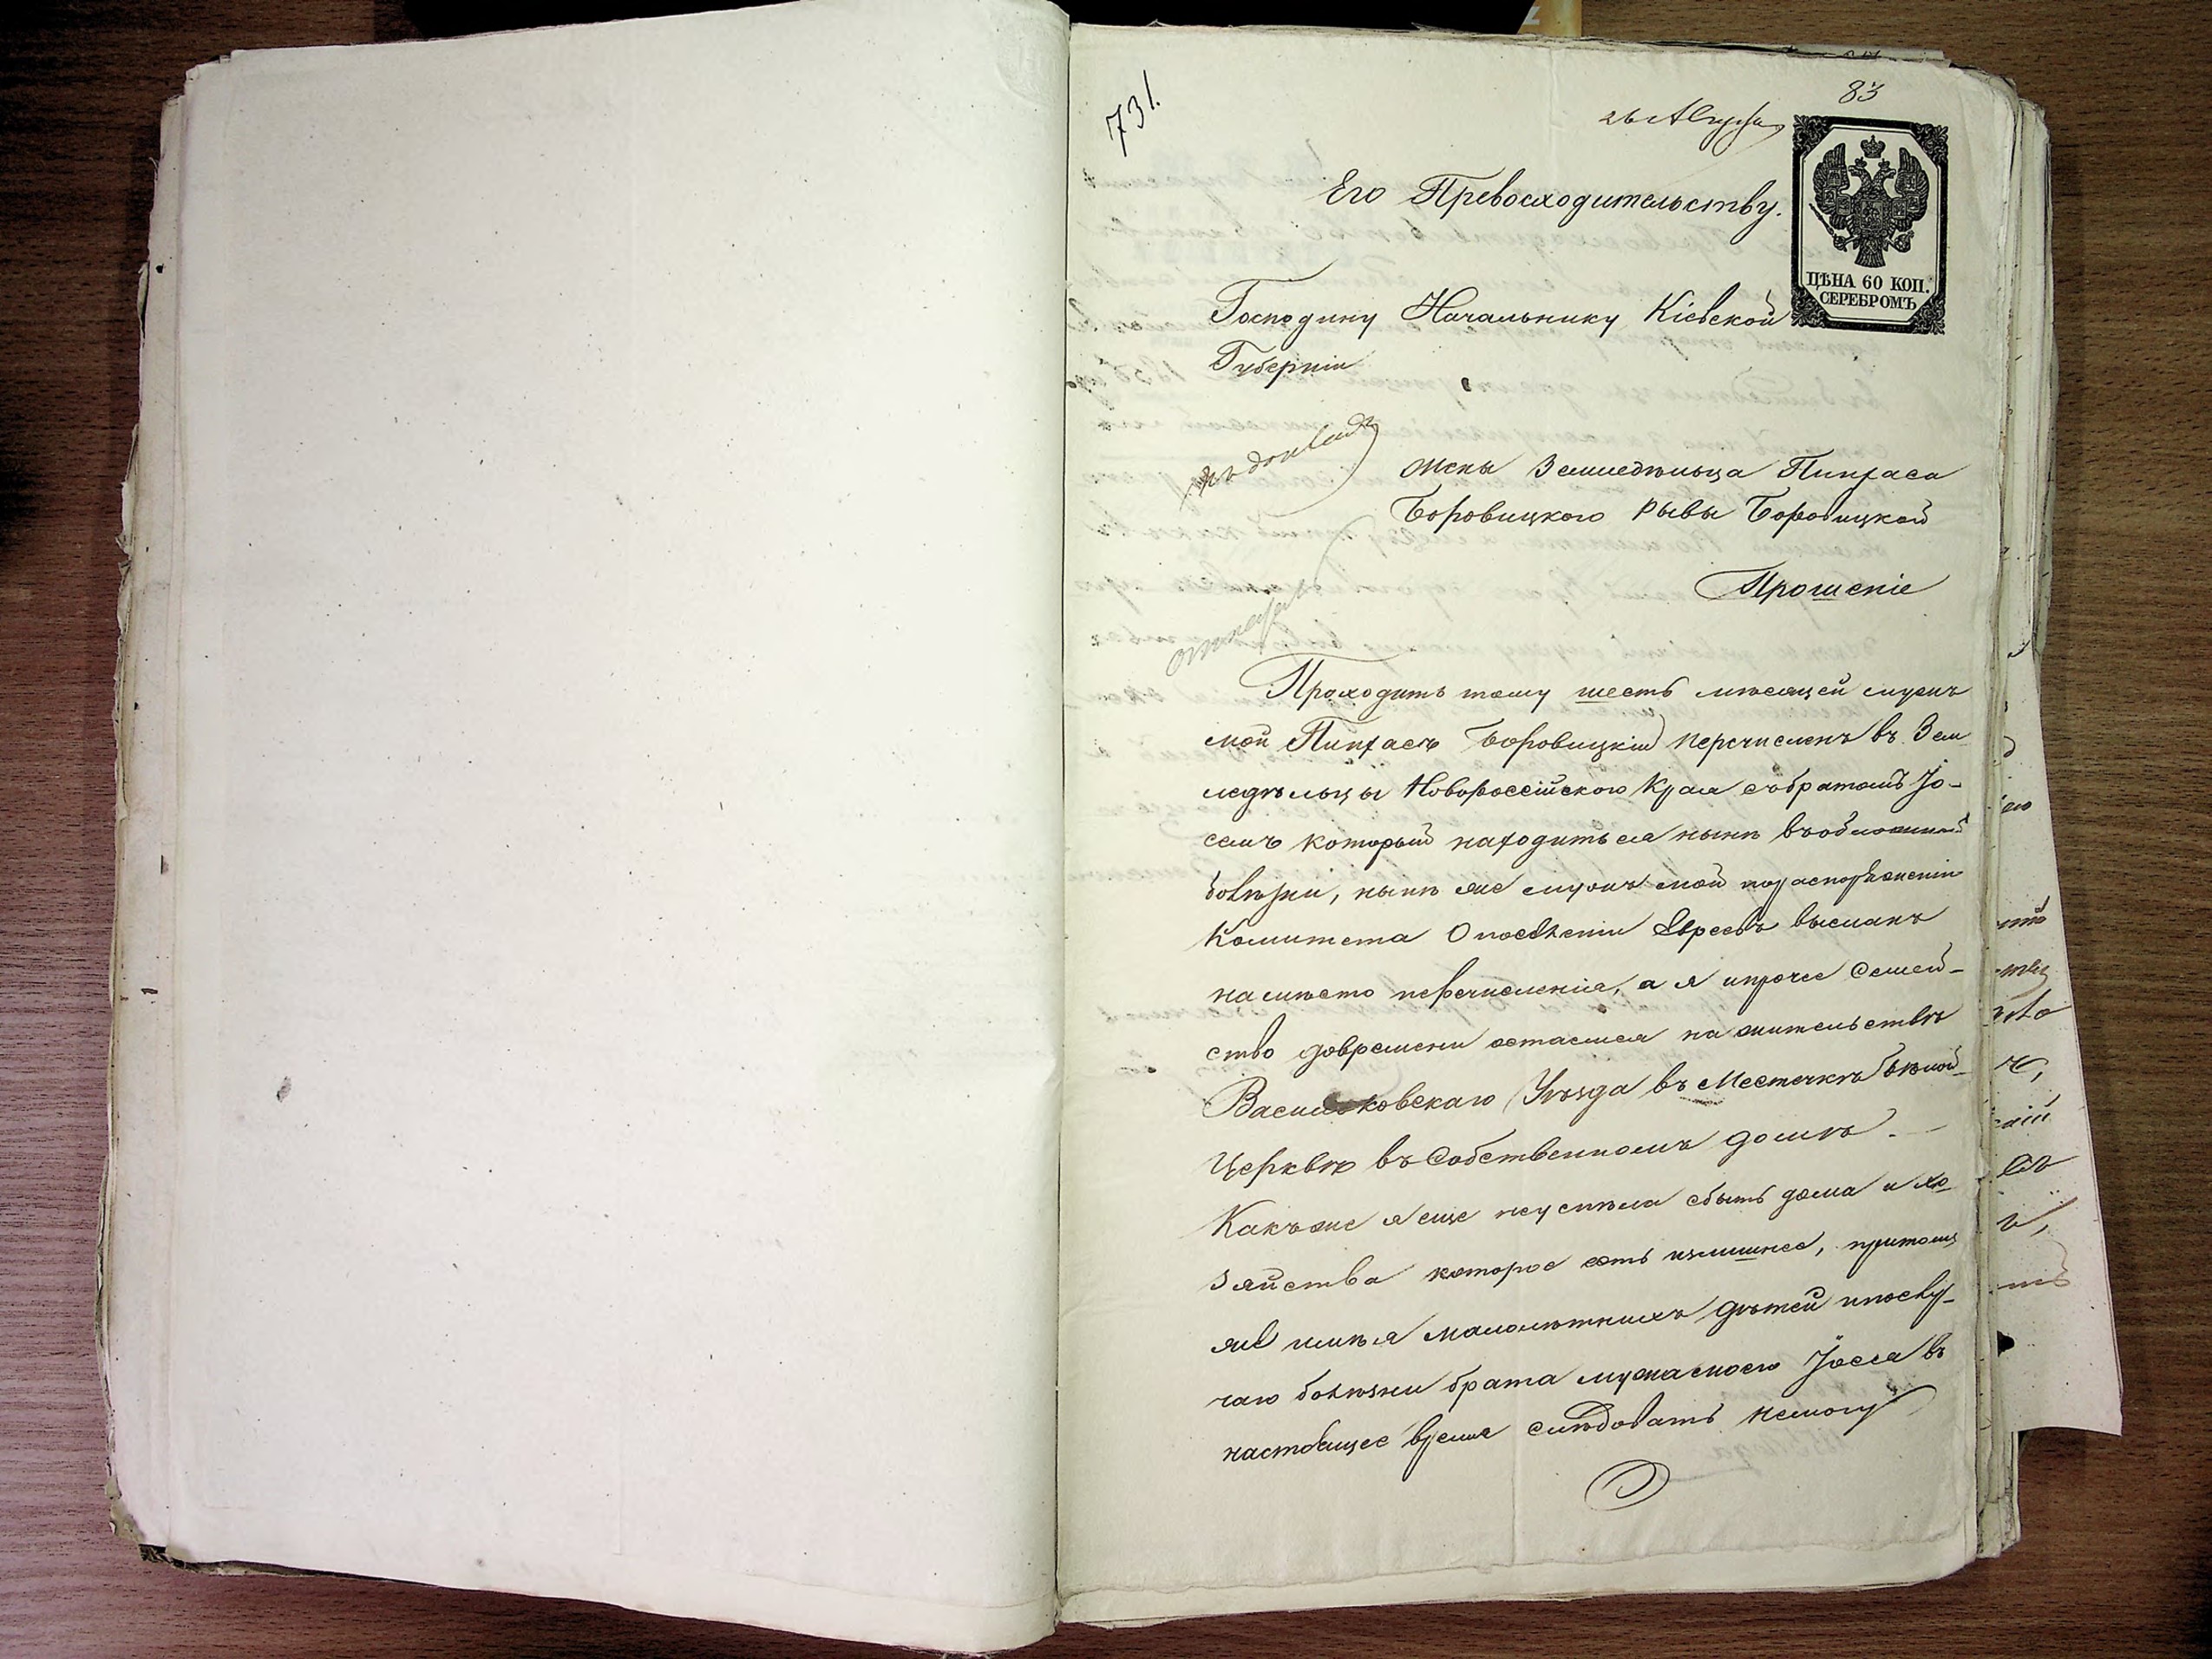 83
731.
26 Августа
Его Превосходительству.
ЦѢНА 60 КОП.
СЕРЕБРОМЪ
Господину Начальнику Кіевской
Губерніи
къ докладу
жены Земледѣльца Пинхаса
Боровицкого Рывы Боровицкой
Прошеніе
Проходитъ тому шесть мѣсяцей мужъ
мой Пинхасъ Боровицкій перечисленъ въ Зем
ледѣльцы Новороссійского Края съ братомъ Іо-
семъ который находиться нынѣ въ
болѣзни, нынѣ же мужъ мой по распоряженіи
Комитета О поселеніи Евреевъ высланъ
на мѣсто перечисленія, а я и прочее Семей-
ство до времени осталися на жительствѣ
Васильковскаго Уѣзда въ Местечкѣ Бѣлой-
Церквѣ въ Собственномъ домѣ. —
Какъ же я еще не успѣла сбыть дома и хо
зяйства которое есть излишнее, притомъ
же имѣя малолѣтнихъ дѣтей и по слу-
чаю болѣзни брата мужа моего Іосся въ
настоящее время слѣдовать не могу